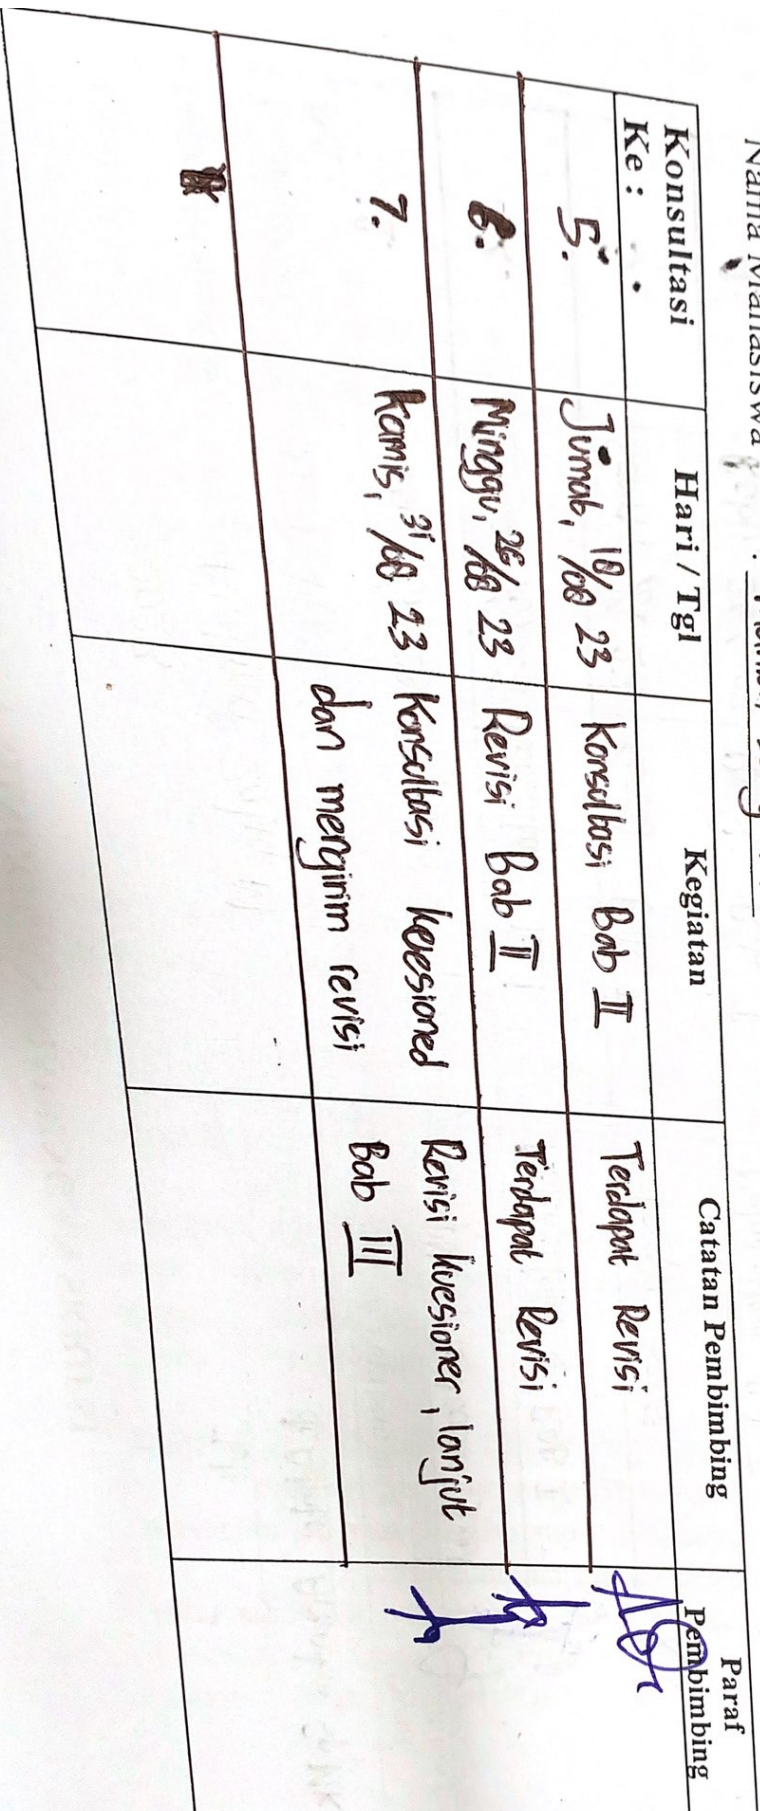 Nama Mahasiswa :
Konsultasi Ke : Hari / Tgl Kegiatan Catatan Pembimbing Paraf Pembimbing
5. Jumat, 18/08 23 Konsultasi Bab II Terdapat Revisi
6. Minggu, 26/08 23 Revisi Bab II Terdapat Revisi
7. Kamis, 31/08 23 Konsultasi kuesioned Revisi kuesioner, lanjut
dan mengirim revisi Bab III